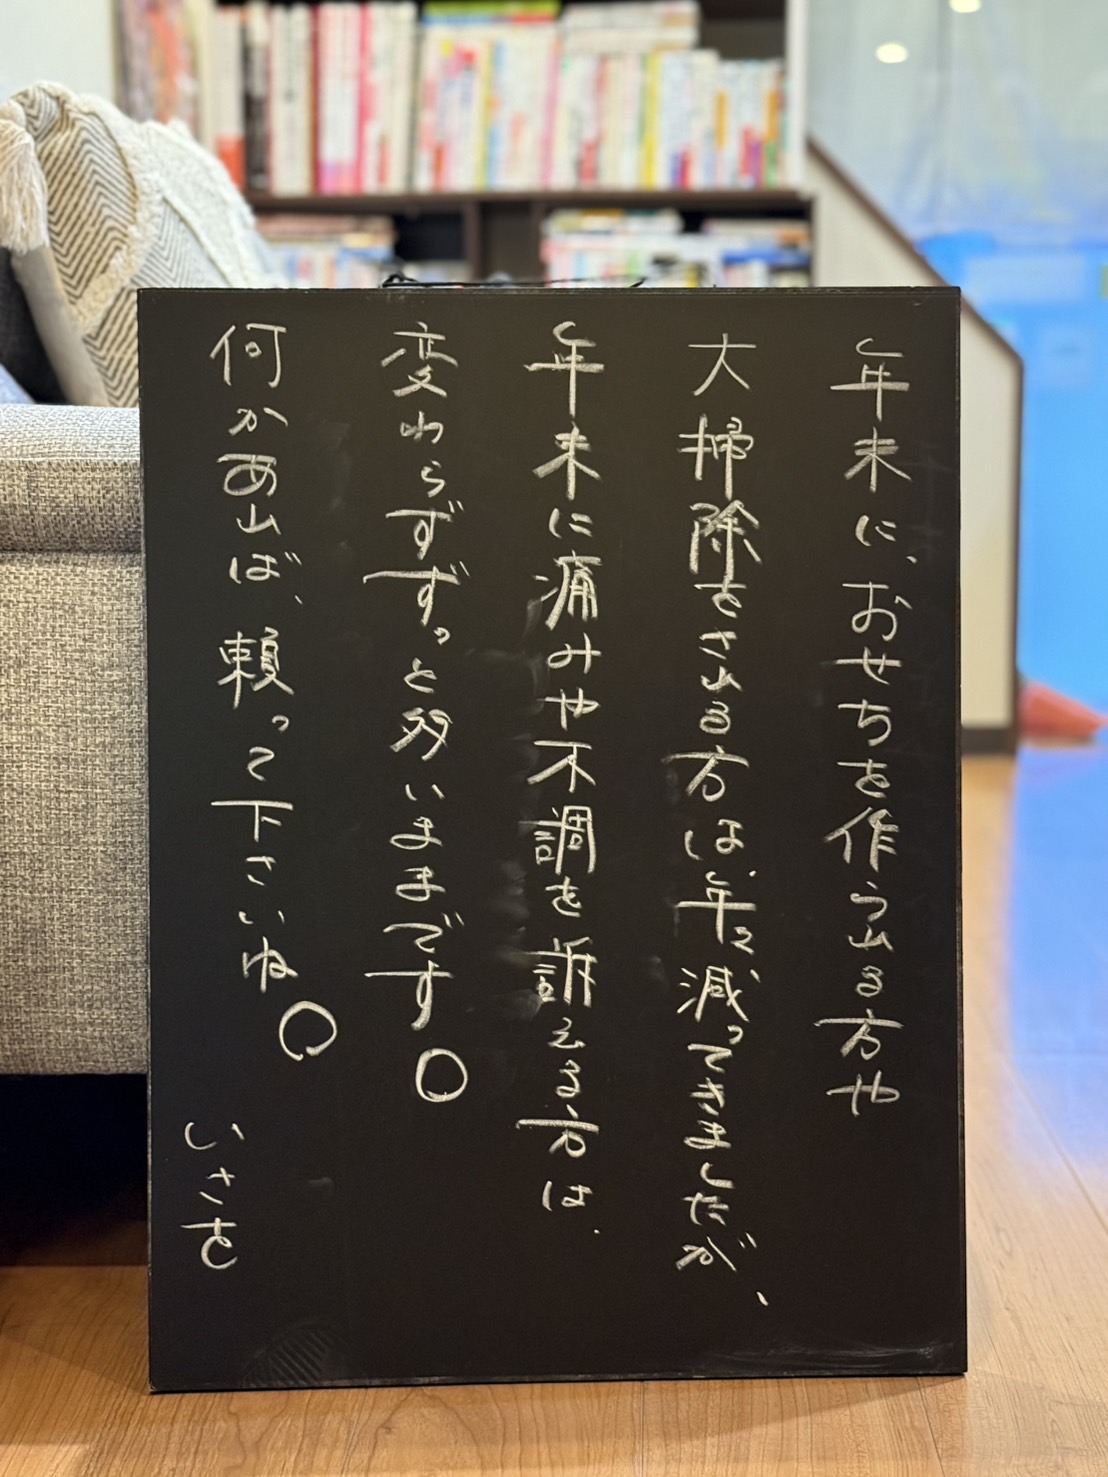 年末に、おせちを作られる方や
大掃除をされる方は、年々、減ってきましたが、
年末に痛みや不調を訴える方は、
変わらずずっと多いままです。
何かあれば、頼って下さいね。
いさを